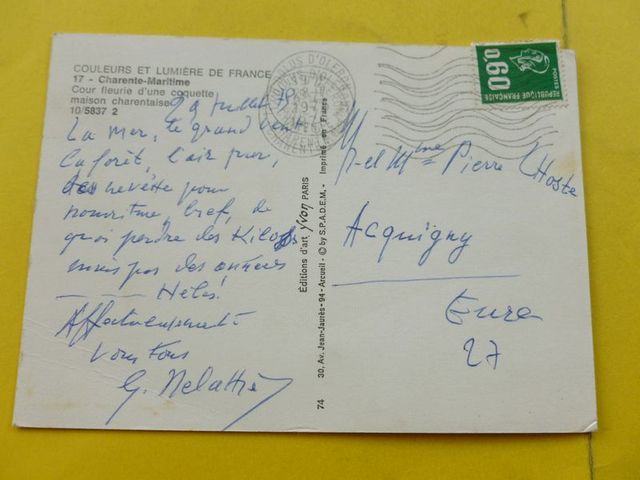 COULEURS ET LUMIÈRE DE FRANCE
17 - Charente-Maritime
Cour fleurie d'une coquette
maison charentaise
10/5837 2
Juillet
La mer, le grand
la forêt, l'air pur,
pour
nourriture, bref, de
quoi perdre des Kilos
mais pas des années
Hélas!
Affectueusement à
vous tous
G.
Éditions d'art yvon PARIS
30, Av. Jean-Jaurès - 94 - Arcueil - © by S.P.A.D.E.M. - Imprimé en France
74
D'OLERON
0,60
POSTES
REPUBLIQUE FRANÇAISE
M. et Mme Pierre L'Hoste
Acquigny
Eure
27